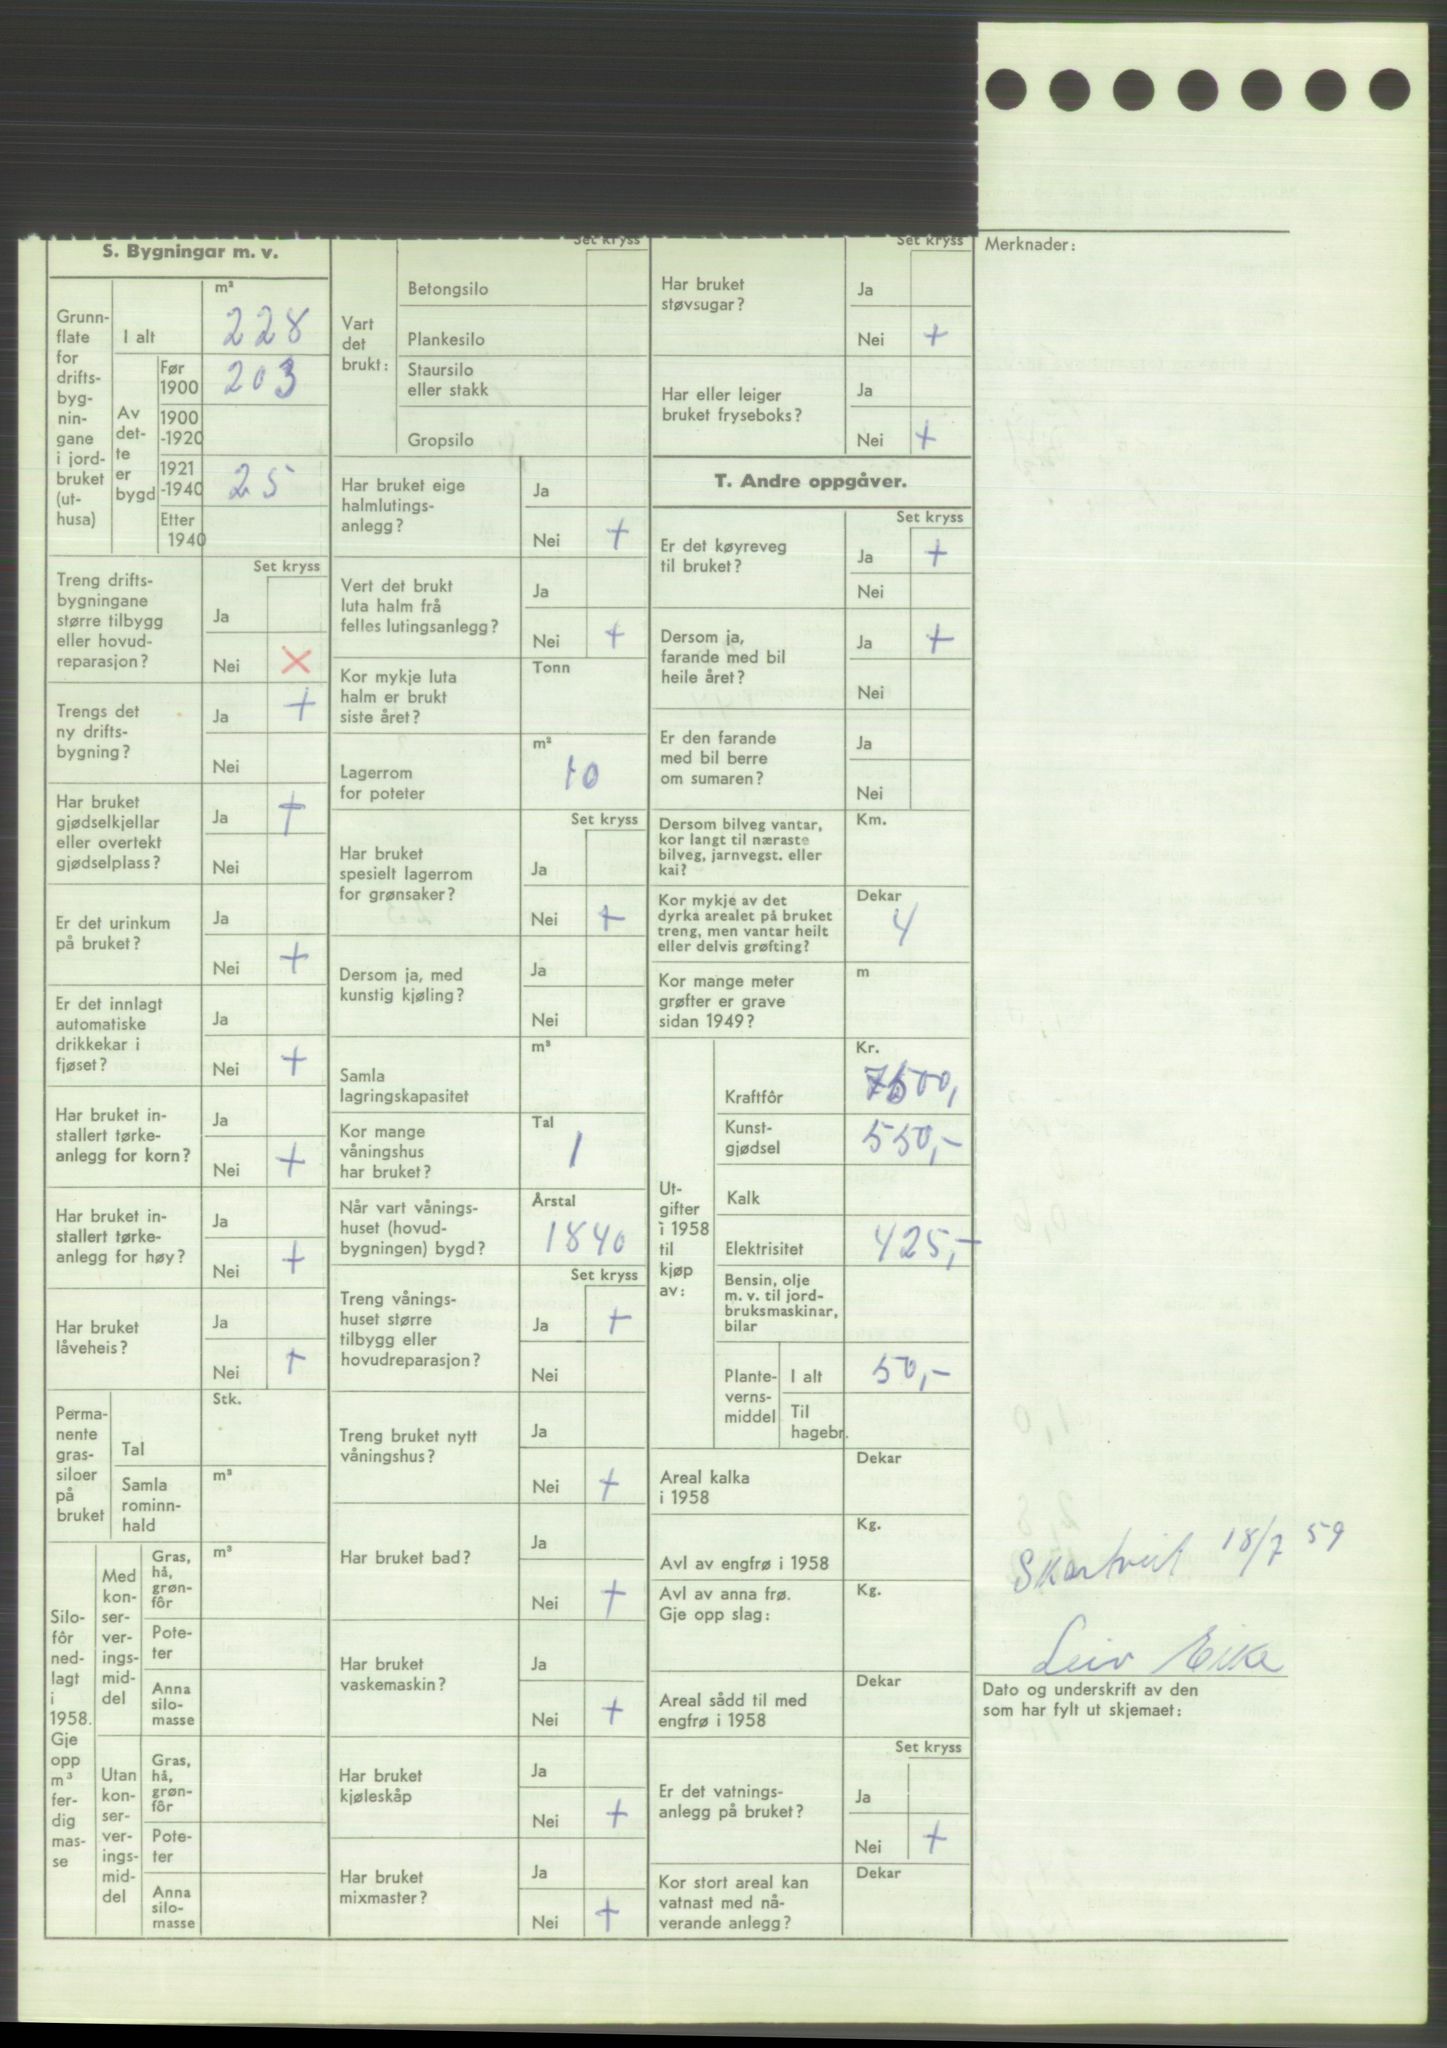 S. Bygningar m. v.
Grunn-
flate
for
drifts-
byg-
nin-
gane
i jord-
bruket
(ut-
husa)
m²
I alt 228
Av
det-
te
er
bygd
Før
1900 203
1900
-1920
1921
-1940 25
Etter
1940
Set kryss
Treng drifts-
bygningane
større tilbygg
eller hovud-
reparasjon?
Ja
Nei X
Trengs det
ny drifts-
bygning?
Ja +
Nei
Har bruket
gjødselkjellar
eller overtekt
gjødselplass?
Ja +
Nei
Er det urinkum
på bruket?
Ja
Nei +
Er det innlagt
automatiske
drikkekar i
fjøset?
Ja
Nei +
Har bruket in-
stallert tørke-
anlegg for korn?
Ja
Nei +
Har bruket in-
stallert tørke-
anlegg for høy?
Ja
Nei +
Har bruket
låveheis?
Ja
Nei +
Perma-
nente
gras-
siloer
på
bruket
Stk.
Tal
Samla
rominn-
hald
m³
Silo-
fôr
ned-
lagt
i
1958.
Gje
opp
m³
fer-
dig
mas-
se
Med
kon-
ser-
ver-
ings-
mid-
del
Gras,
hå,
grøn-
fôr
m³
Pote-
ter
Anna
silo-
masse
Utan
kon-
ser-
ver-
ings-
mid-
del
Gras,
hå,
grøn-
fôr
Pote-
ter
Anna
silo-
masse
Set kryss
Vart
det
brukt:
Betongsilo
Plankesilo
Staursilo
eller stakk
Gropsilo
Har bruket eige
halmlutings-
anlegg?
Ja
Nei +
Vert det brukt
luta halm frå
felles lutingsanlegg?
Ja
Nei +
Kor mykje luta
halm er brukt
siste året?
Tonn
Lagerrom
for poteter
m²
10
Set kryss
Har bruket
spesielt lagerrom
for grønsaker?
Ja
Nei +
Dersom ja, med
kunstig kjøling?
Ja
Nei
Samla
lagringskapasitet
m³
Kor mange
våningshus
har bruket?
Tal
1
Når vart vånings-
huset (hovud-
bygningen) bygd?
Årstal
1840
Set kryss
Treng vånings-
huset større
tilbygg eller
hovudreparasjon?
Ja +
Nei
Treng bruket nytt
våningshus?
Ja
Nei +
Har bruket bad?
Ja
Nei +
Har bruket
vaskemaskin?
Ja
Nei +
Har bruket
kjøleskåp
Ja
Nei +
Har bruket
mixmaster?
Ja
Nei +
Set kryss
Har bruket
støvsugar?
Ja
Nei +
Har eller leiger
bruket fryseboks?
Ja
Nei +
T. Andre oppgåver.
Set kryss
Er det køyreveg
til bruket?
Ja +
Nei
Dersom ja,
farande med bil
heile året?
Ja +
Nei
Er den farande
med bil berre
om sumaren?
Ja
Nei
Dersom bilveg vantar,
kor langt til næraste
bilveg, jarnvegst. eller
kai?
Km.
Kor mykje av det
dyrka arealet på bruket
treng, men vantar heilt
eller delvis grøfting?
Dekar
4
Kor mange meter
grøfter er grave
sidan 1949?
m
Ut-
gifter
i 1958
til
kjøp
av:
Kr.
Kraftfôr
Kunst-
gjødsel 550,-
Kalk
Elektrisitet 425,-
Bensin, olje
m. v. til jord-
bruksmaskinar,
bilar
Plante-
verns-
middel
I alt 50,-
Til
hagebr.
Areal kalka
i 1958
Dekar
Avl av engfrø i 1958
Kg.
Avl av anna frø.
Gje opp slag:
Kg.
Areal sådd til med
engfrø i 1958
Dekar
Set kryss
Er det vatnings-
anlegg på bruket?
Ja
Nei +
Kor stort areal kan
vatnast med nå-
verande anlegg?
Dekar
Merknader:
Skartveit 18/7 59
Leiv Eike
Dato og underskrift av den
som har fylt ut skjemaet: